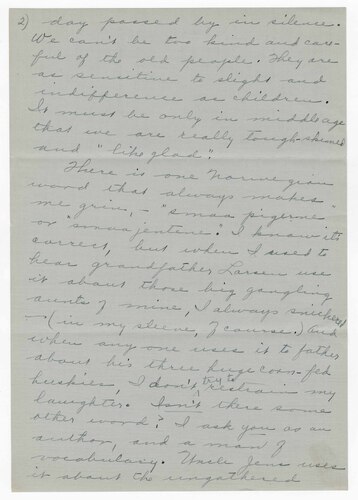 2) day passed by in silence.
We can't be too kind and care-
ful of the old people. They are
as sensitive to slight and
indifference as children.
It must be only in middle age
that we are really tough-skinned
and "like glad".
There is one Norwegian
word that always makes
me grin, - "smaa pigerne"
or "smaa jentene". I know it's
correct, but when I used to
hear grandfather Larsen use
it about those big gangling
aunts of mine, I always snickered
- (in my sleeve, of course.) And
when any one uses it to father
about his three huge corn-fed
huskies, I don't try to restrain my
laughter. Isn't there some
other word? I ask you as an
author, and a man of
vocabulary. Uncle Jens uses
it about the ungathered